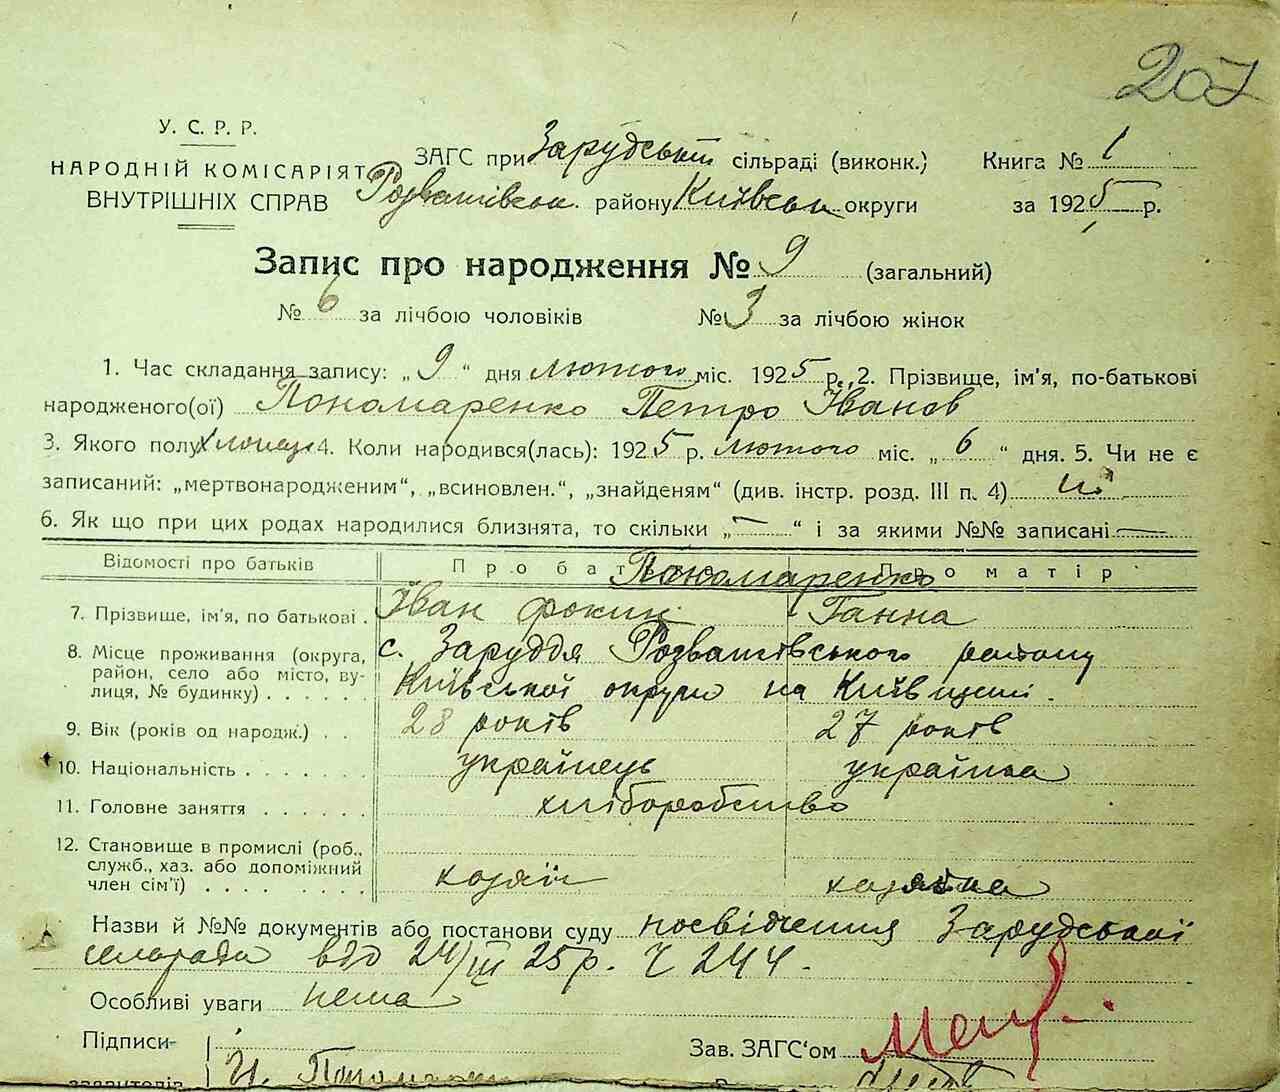 207
У. С. Р. Р.
НАРОДНІЙ КОМІСАРІЯТ
ВНУТРІШНІХ СПРАВ
ЗАГС при Зарудській сільраді (виконк.) Книга № 1
Розважівськ. району Київськ. округи за 1925 р.
Запис про народження № 9 (загальний)
№ 6 за лічбою чоловіків № 3 за лічбою жінок
1. Час складання запису: „ 9 “ дня лютого міс. 1925 р. 2. Прізвище, ім'я, по-батькові
народженого(ої) Пономаренко Петро Іванов
3. Якого полу хлопець 4. Коли народився(лась): 1925 р. лютого міс. „ 6 “ дня. 5. Чи не є
записаний: „мертвонародженим“, „всиновлен.“, „знайденям“ (див. інстр. розд. III п. 4) ні
6. Як що при цих родах народилися близнята, то скільки „ — “ і за якими №№ записані —
Відомості про батьків Про батька Про матір
Пономаренко
7. Прізвище, ім'я, по батькові . Іван Фокин Ганна
8. Місце проживання (округа, с. Заруддя Розважівського району
район, село або місто, ву-
лиця, № будинку) . . . . . Київської округи на Київщині.
9. Вік (років од народж.) . . 28 років 27 років
10. Національність . . . . . . . українець українка
11. Головне заняття . . . . . . хліборобство
12. Становище в промислі (роб.,
служб., хаз. або допоміжний
член сім'ї) . . . . . . . . хазяїн хазяйка
Назви й №№ документів або постанови суду посвідчення Зарудської
сільради від 24/III 25р. Ч 244.
Особливі уваги нема
Підписи Зав. ЗАГС‘ом
заявителів И. Пономаренко